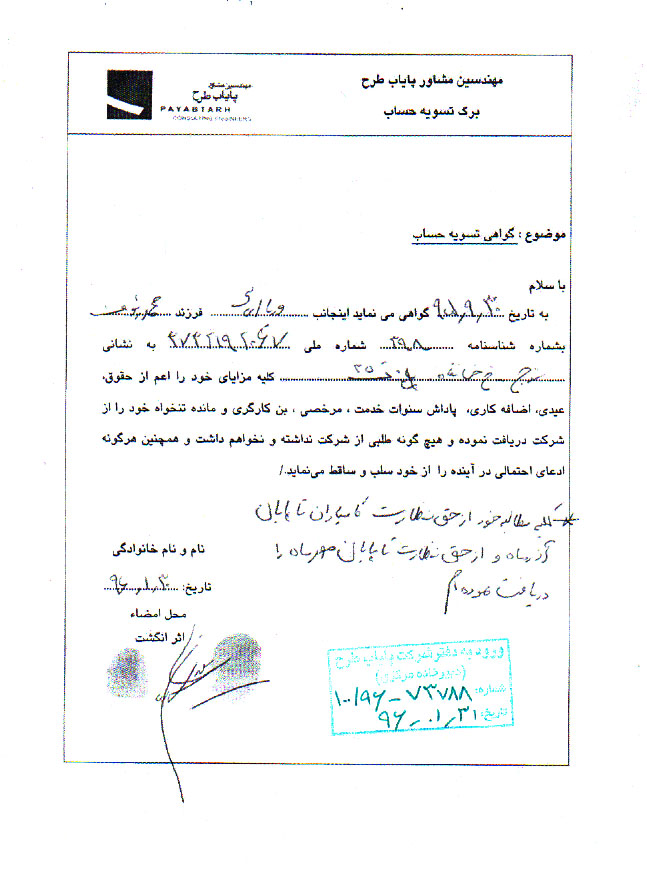 مهندسین مشاور پایاب طرح
برگ تسویه حساب
مهندسین مشاور
پایاب طرح
PAYABTARH
CONSULTING ENGINEERS
موضوع : گواهی تسویه حساب
با سلام
به تاریخ گواهی می نماید اینجانب فرزند
بشماره شناسنامه ۳۹۸ شماره ملی به نشانی
سنندج کلیه مزایای خود را اعم از حقوق،
عیدی، اضافه کاری، پاداش سنوات خدمت ، مرخصی ، بن کارگری و مانده تنخواه خود را از
شرکت دریافت نموده و هیچ گونه طلبی از شرکت نداشته و نخواهم داشت و همچنین هرگونه
ادعای احتمالی در آینده را از خود سلب و ساقط می‌نماید./
* کلیه مطالبه خود از حق نظارت کامیاران تا پایان
آذرماه و از حق نظارت تا پایان مهرماه را
دریافت نموده ام
نام و نام خانوادگی
تاریخ: ۹۶,۱,۳۰
محل امضاء
اثر انگشت
ورود به دفتر شرکت پایاب طرح
(دبیرخانه مرکزی)
شماره: ۱۰۰/۹۶-۷۳۷۸۸
تاریخ: ۹۶,۰۱,۳۱